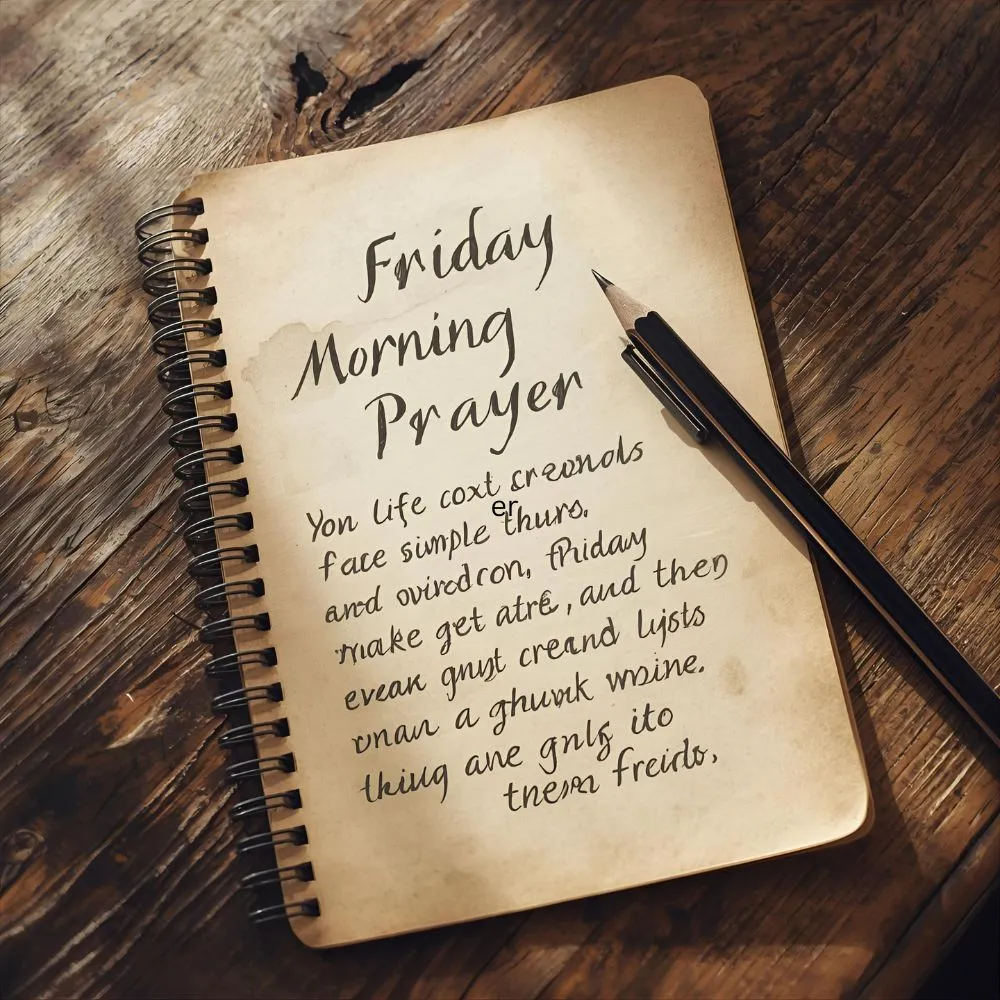 Friday
Morning
Prayer
You life coxt creonols
er
face simple thurs.
and ovirdron, fhiday
make get atrē, and then
eveak gnyt creand lysts
vnan a ghuvk woine.
thiug ane gnlg ito
then freirds,